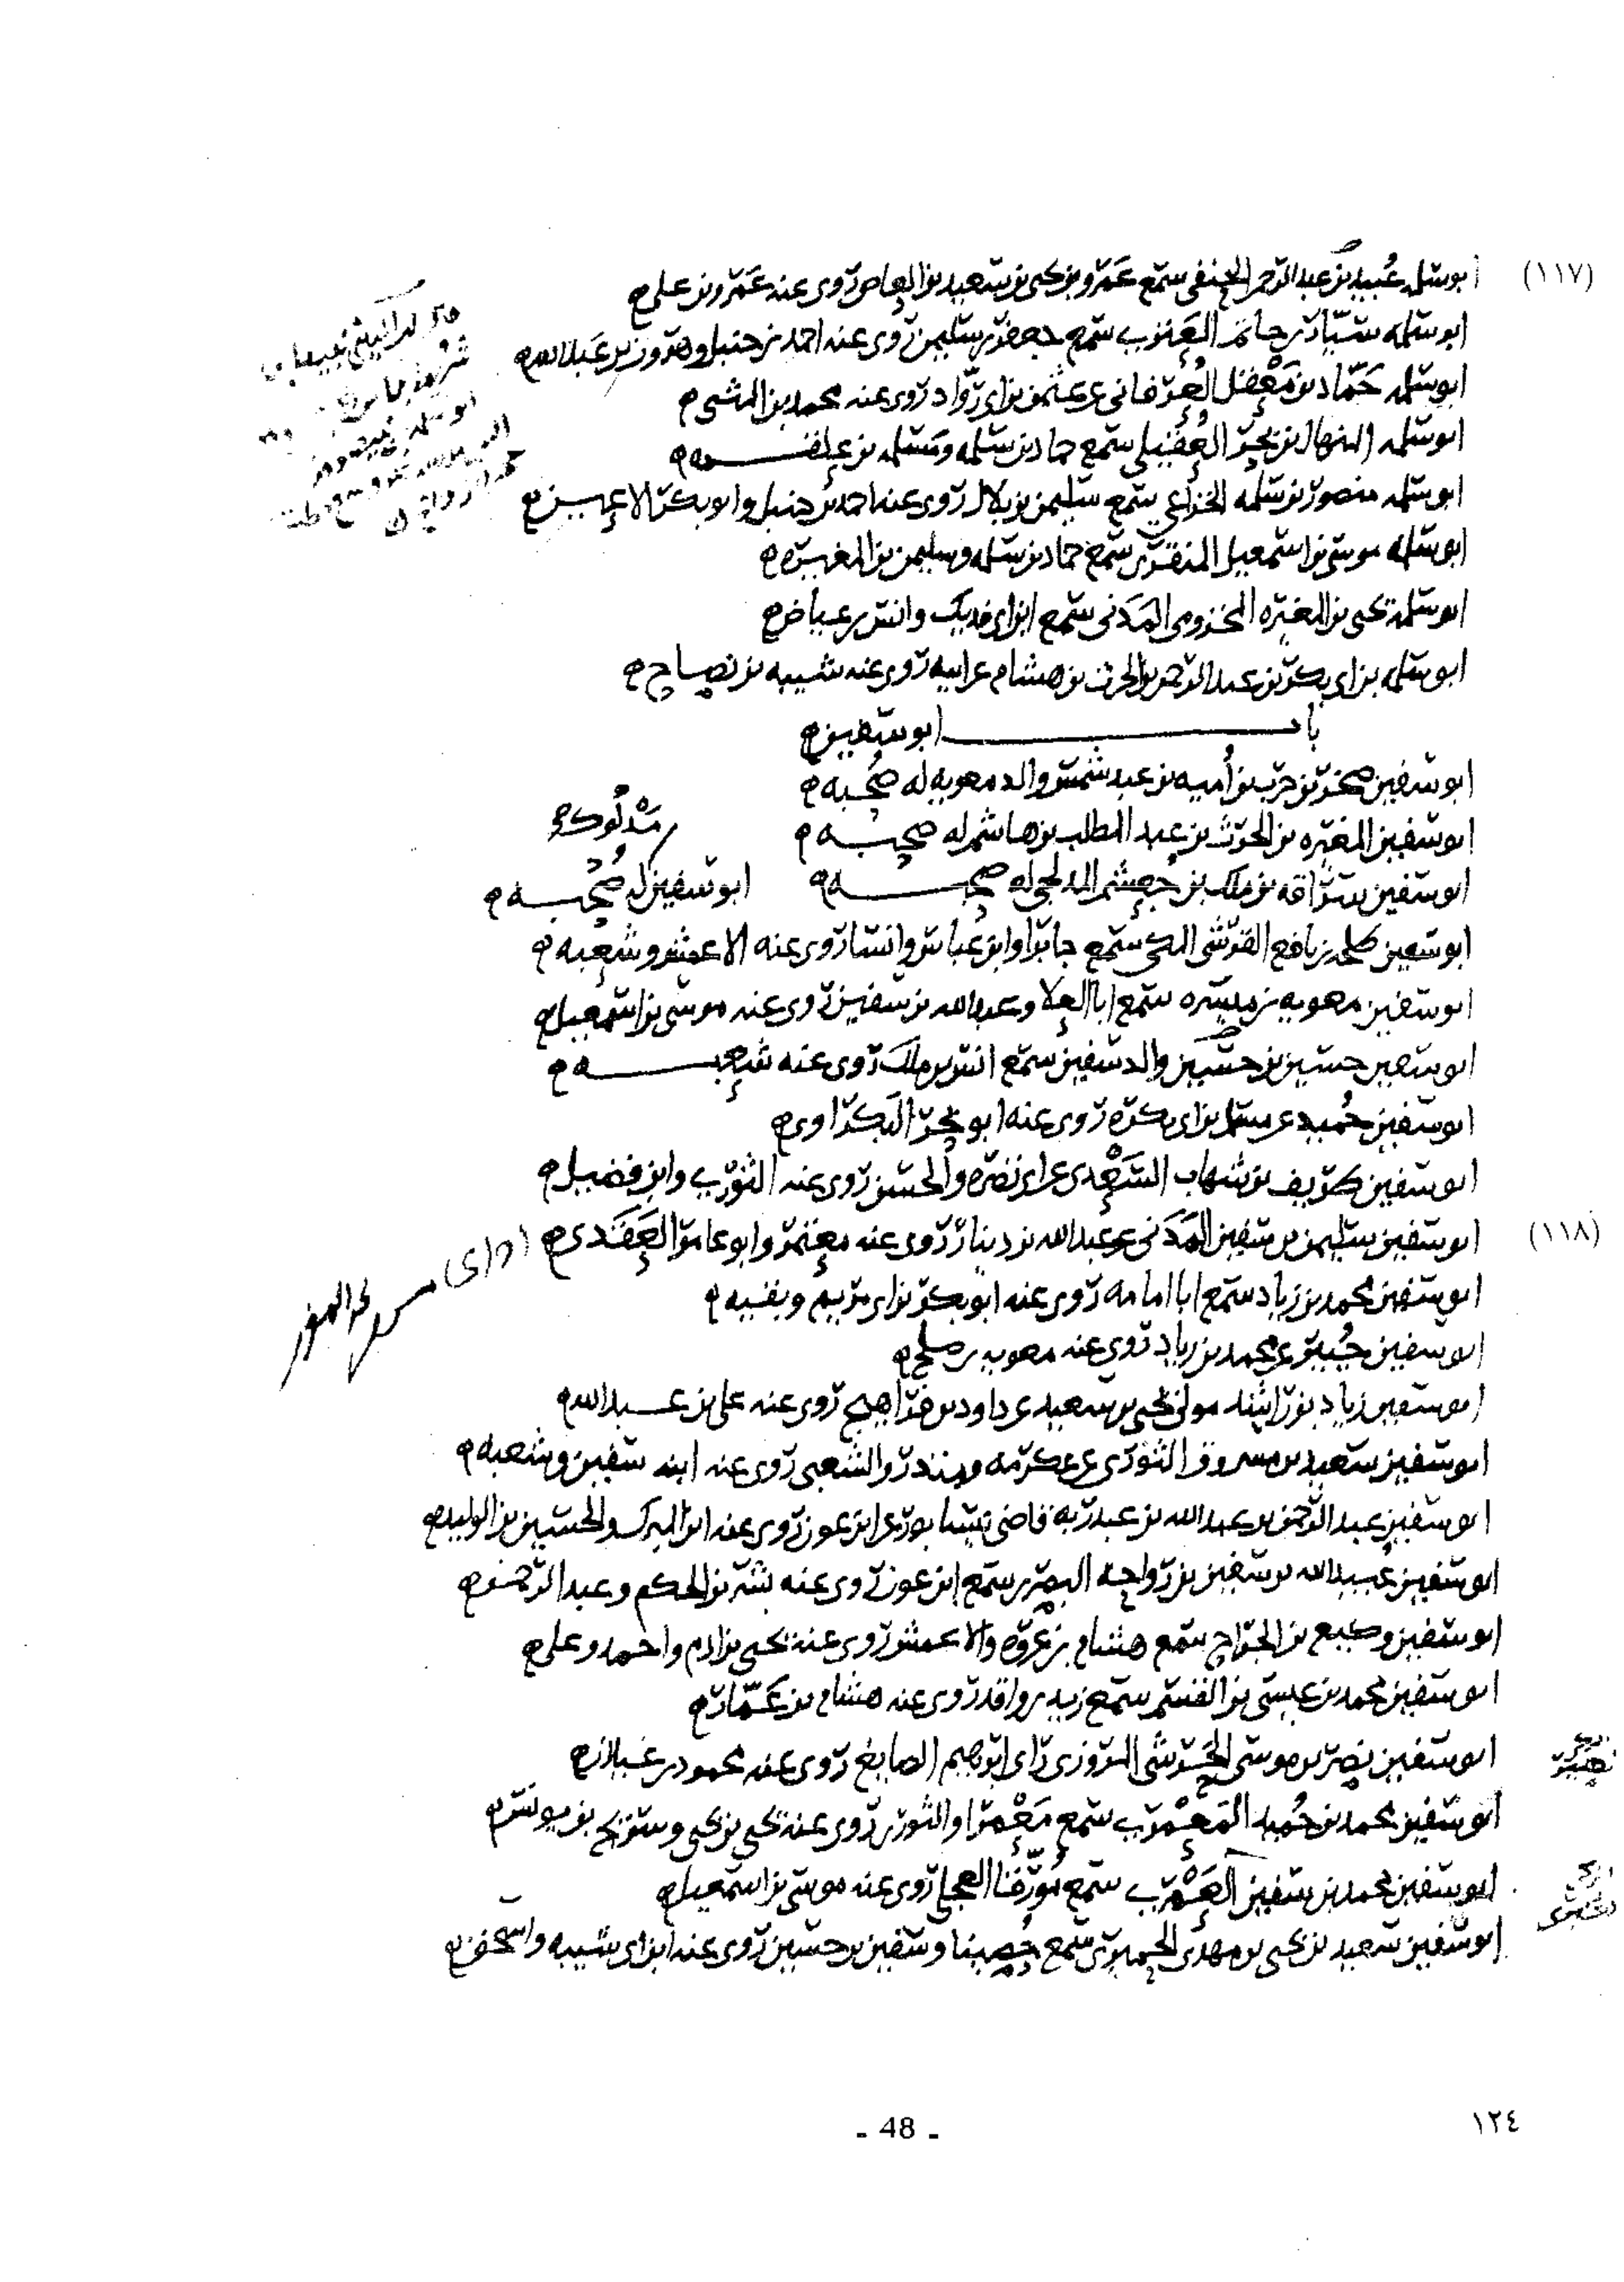 (١١٧)
ابو سلمه عُبيد بن عبد الرحمن الحنفي سمع عَمرو بن يحيى بن سعيد بن العاص روى عنه عَمرو بن علي ه
ابو سلمه سَيّار بن حاتم العَنزي سمع جعفر بن سليمن روى عنه احمد بن حنبل وهرون بن عَبد الله ه
ابو سلمه حَمّاد بن مَعْقل العُرفاني عن عثمن بن ابي رَوّاد روى عنه محمد بن المثنى ه
ابو سلمه المنهال بن بحر العُقيلي سمع حماد بن سلمه ومسلمه بن علقمه ه
ابو سلمه منصور بن سلمه الخزاعي سمع سليمن بن بلال روى عنه احمد بن حنبل وابو بكر الاعين ه
ابو سلمه موسى بن اسمعيل المنقري سمع حماد بن سلمه وسليمن بن المغيره ه
ابو سلمة يحيى بن المغيره المخزومي المَدَني سمع ابن ابي فديك وانس بن عياض ه
ابو سلمه بن ابي بكر بن عبد الرحمن بن الحرث بن هشام عن ابيه روى عنه شيبه بن نصاح ه
باب ابو سفين ه
ابو سفين صخر بن حرب بن أُميه بن عبد شمس والد معويه له صُحبه ه
ابو سفين المغيره بن الحرث بن عبد المطلب بن هاشم له صحبه ه
ابو سفين سراقه بن ملك بن جُعشم المدلجي له صحبه ه
مَدْلُوك ه
ابو سفين له صُحبه ه
ابو سفين طلحه بن نافع القرشي المكي سمع جابرا وابن عباس وانسا روى عنه الاعمش وشعبه ه
ابو سفين معويه بن ميسره سمع ابا العلا وعبد الله بن سفين روى عنه موسى بن اسمعيل ه
ابو سفين حسين بن حسين والد سفين سمع انس بن ملك روى عنه شعبه ه
ابو سفين حُميد عن مسلم بن ابي بكره روى عنه ابو بحر البكراوي ه
ابو سفين طريف بن شهاب السَعْدي عن ابي نضره والحسن روى عنه الثوري وابن فضيل ه
(١١٨)
ابو سفين سليمن بن سفين المَدَني عن عبد الله بن دينار روى عنه معتمر وابو عامر العَقَدي ه
ابو سفين محمد بن زياد سمع ابا امامه روى عنه ابو بكر بن ابي مريم وبقيه ه
ابو سفين حُبيب عن محمد بن زياد روى عنه معويه بن صلح ه
ابو سفين زياد بن راشد مولى يحيى بن سعيد عن داود بن فراهيج روى عنه علي بن عبد الله ه
ابو سفين سعيد بن مسروق الثوري عن عكرمه ومنذر والشعبي روى عنه ابنه سفين وشعبه ه
ابو سفين عبد الرحمن بن عبد الله بن عبد ربه قاضي نيسابور عن ابن عون روى عنه ابن المبرك والحسين بن الوليد ه
ابو سفين عُبيد الله بن سفين بن رواحه البصري سمع ابن عون روى عنه بشر بن الحكم وعبد الرحمن ه
ابو سفين وكيع بن الجراح سمع هشام بن عروه والاعمش روى عنه يحيى بن ادم واحمد وعلي ه
ابو سفين محمد بن عيسى بن القسم سمع زيد بن واقد روى عنه هشام بن عَمّار ه
ابو سفين نصر بن موسى الحرشي المروزي راى ابرهيم الصايغ روى عنه محمود بن غيلان ه
ابو سفين محمد بن حُميد المَعْمري سمع مَعْمرا والثوري روى عنه يحيى بن يحيى وسريج بن يونس ه
ابو سفين محمد بن سفين سمع مُوَرّقا العجلي روى عنه موسى بن اسمعيل ه
ابو سفين سعيد بن يحيى بن مهدي الحميري سمع حُصينا وسفين بن حسين روى عنه ابن ابي شيبه واسحق ه
- 48 -
١٢٤